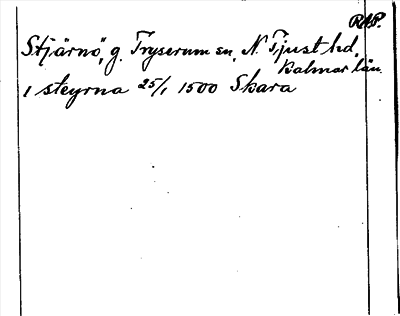 RAP.
Stjärnö, g. Tryserum sn, N. Tjust hd,
Kalmar län.
1 steyrna 25/1 1500 Skara